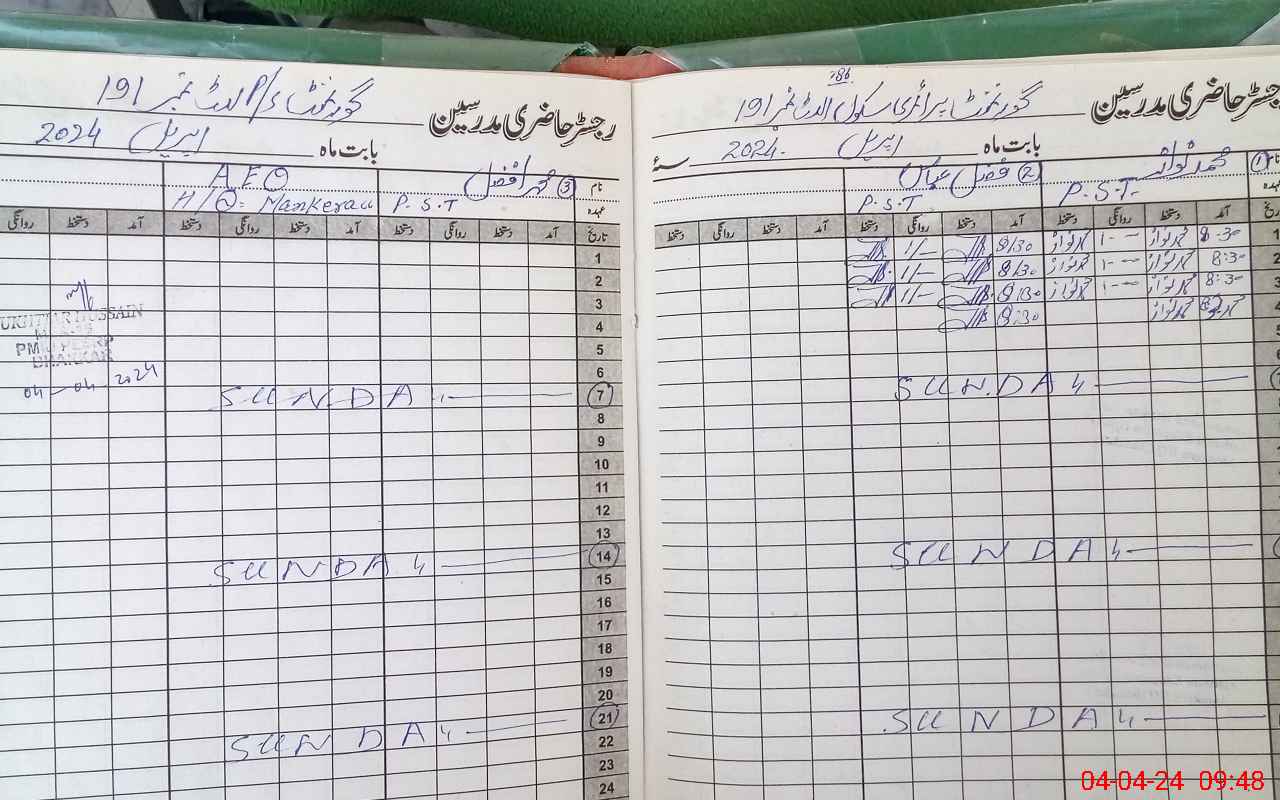 786
رجسٹر حاضری مدرسین گورنمنٹ پرائمری سکول الدٹ نمبر 191
بابت ماہ اپریل 2024 سنہ
نام ① محمد نواز ② فضل عباس
P.S.T. P.S.T
تاریخ آمد دستخط روانگی دستخط آمد دستخط روانگی دستخط آمد دستخط روانگی دستخط
1 8:30 محمد نواز 1-- محمد نواز 8/30 1/-
2 8:30 محمد نواز 1-- محمد نواز 8/30 1/-
3 8:30 محمد نواز 1-- محمد نواز 8/30 1/-
4 محمد نواز 8:30
5
6
SUNDAY
SUNDAY
SUNDAY
رجسٹر حاضری مدرسین گورنمنٹ P/S الدٹ نمبر 191
بابت ماہ اپریل 2024
نام ③ محمد افضل AEO
عہدہ P.S.T H/Q: Mankera
تاریخ آمد روانگی دستخط آمد دستخط روانگی دستخط آمد دستخط روانگی
1
2
3
UKHTIAR HUSSAIN
4
PM
5
BHAKKAR
6
04-04-2024
7 SUNDAY
8
9
10
11
12
13
14 SUNDAY
15
16
17
18
19
20
21 SUNDAY
22
23
24
04-04-24 09:48